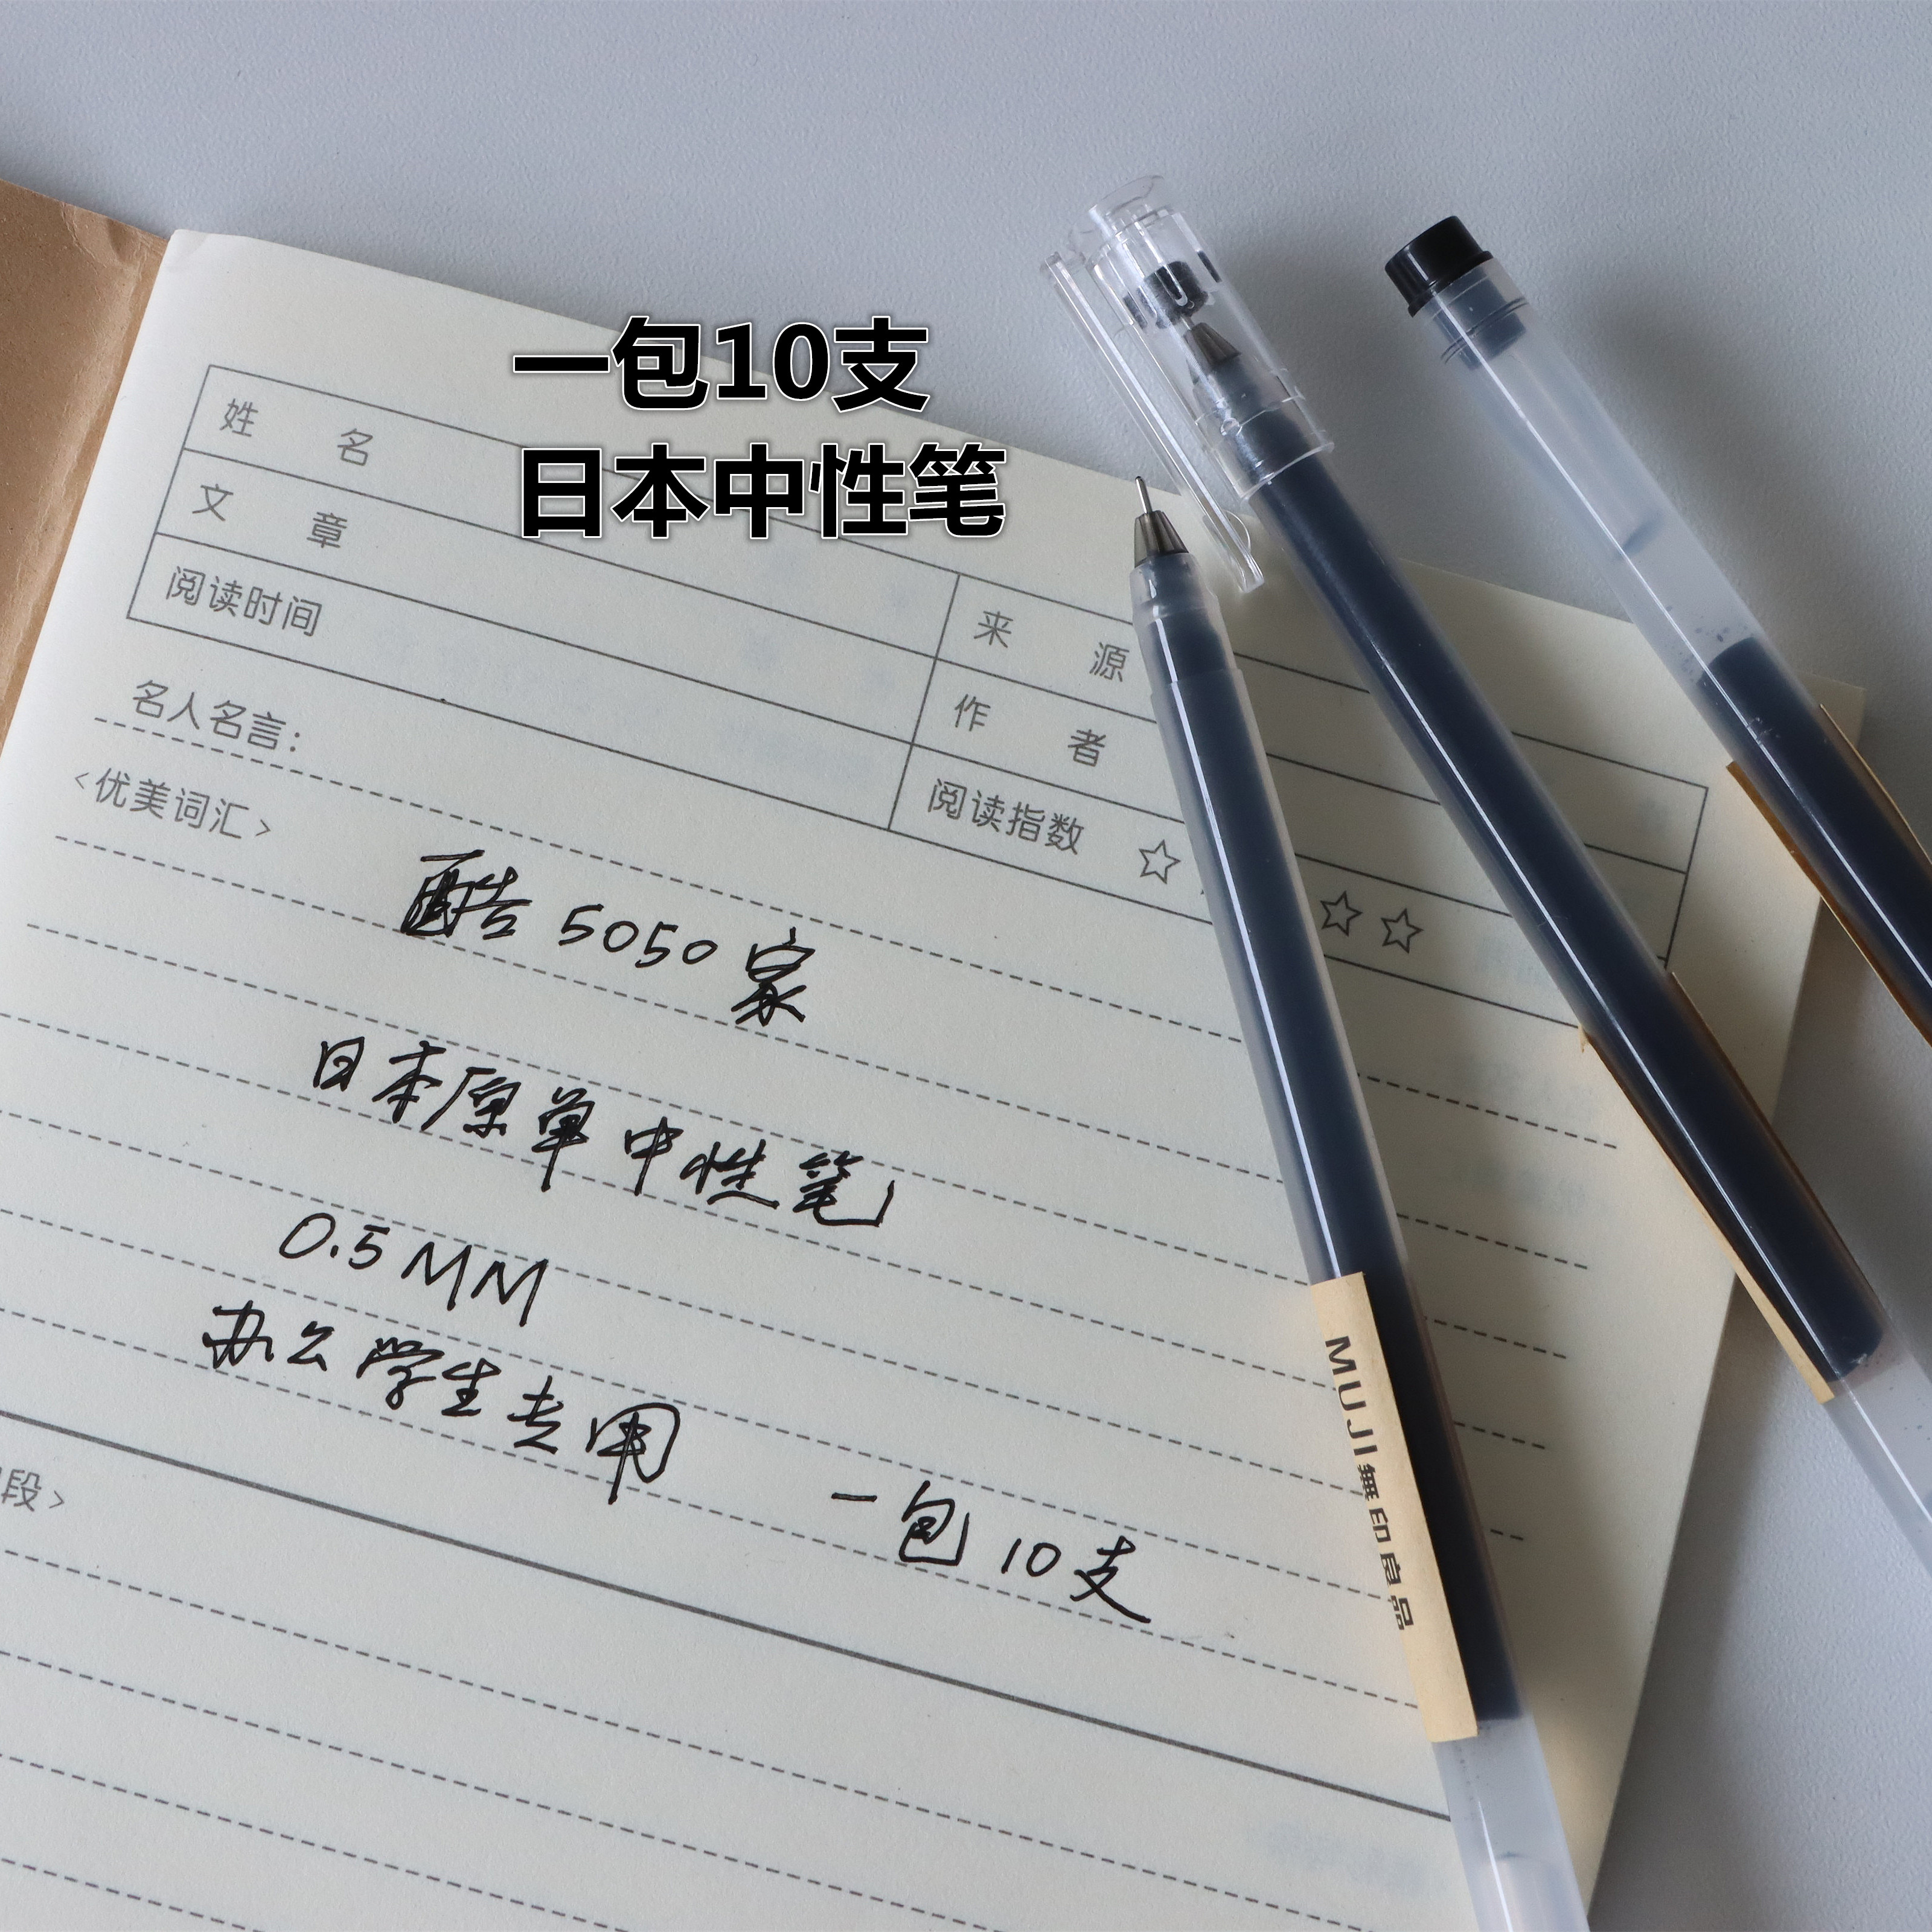 一包10支
日本中性笔
姓 名
文 章
来 源
阅读时间
作 者
名人名言:
阅读指数 ☆ ☆ ☆
<优美词汇>
酷 5050 家
日本原单中性笔
0.5MM
办公学生专用
一包 10 支
段>
MUJI 無印良品